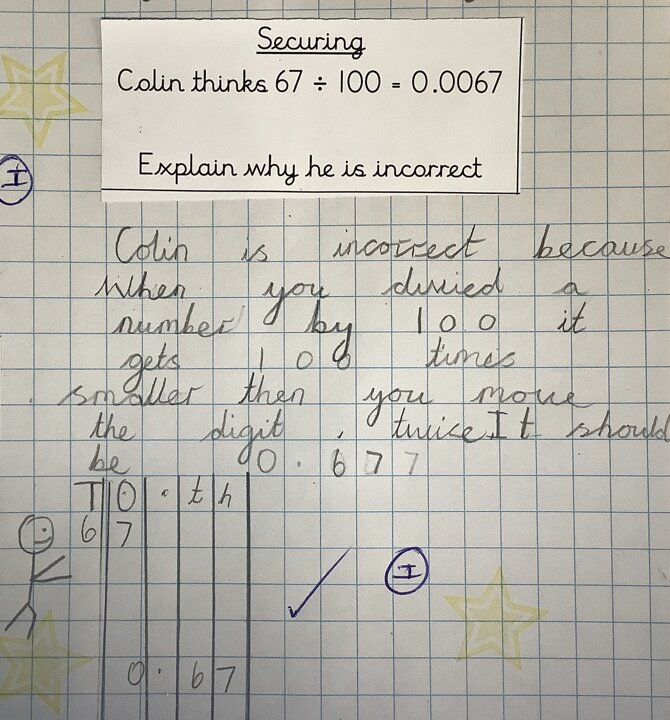 Securing
Colin thinks 67 ÷ 100 = 0.0067
Explain why he is incorrect
I
Colin is incorrect because
When you divied a
number by 100 it
gets 100 times
smaller then you move
the digit , twice It should
be 0.677
T O . t h
6 7
I
0 . 6 7